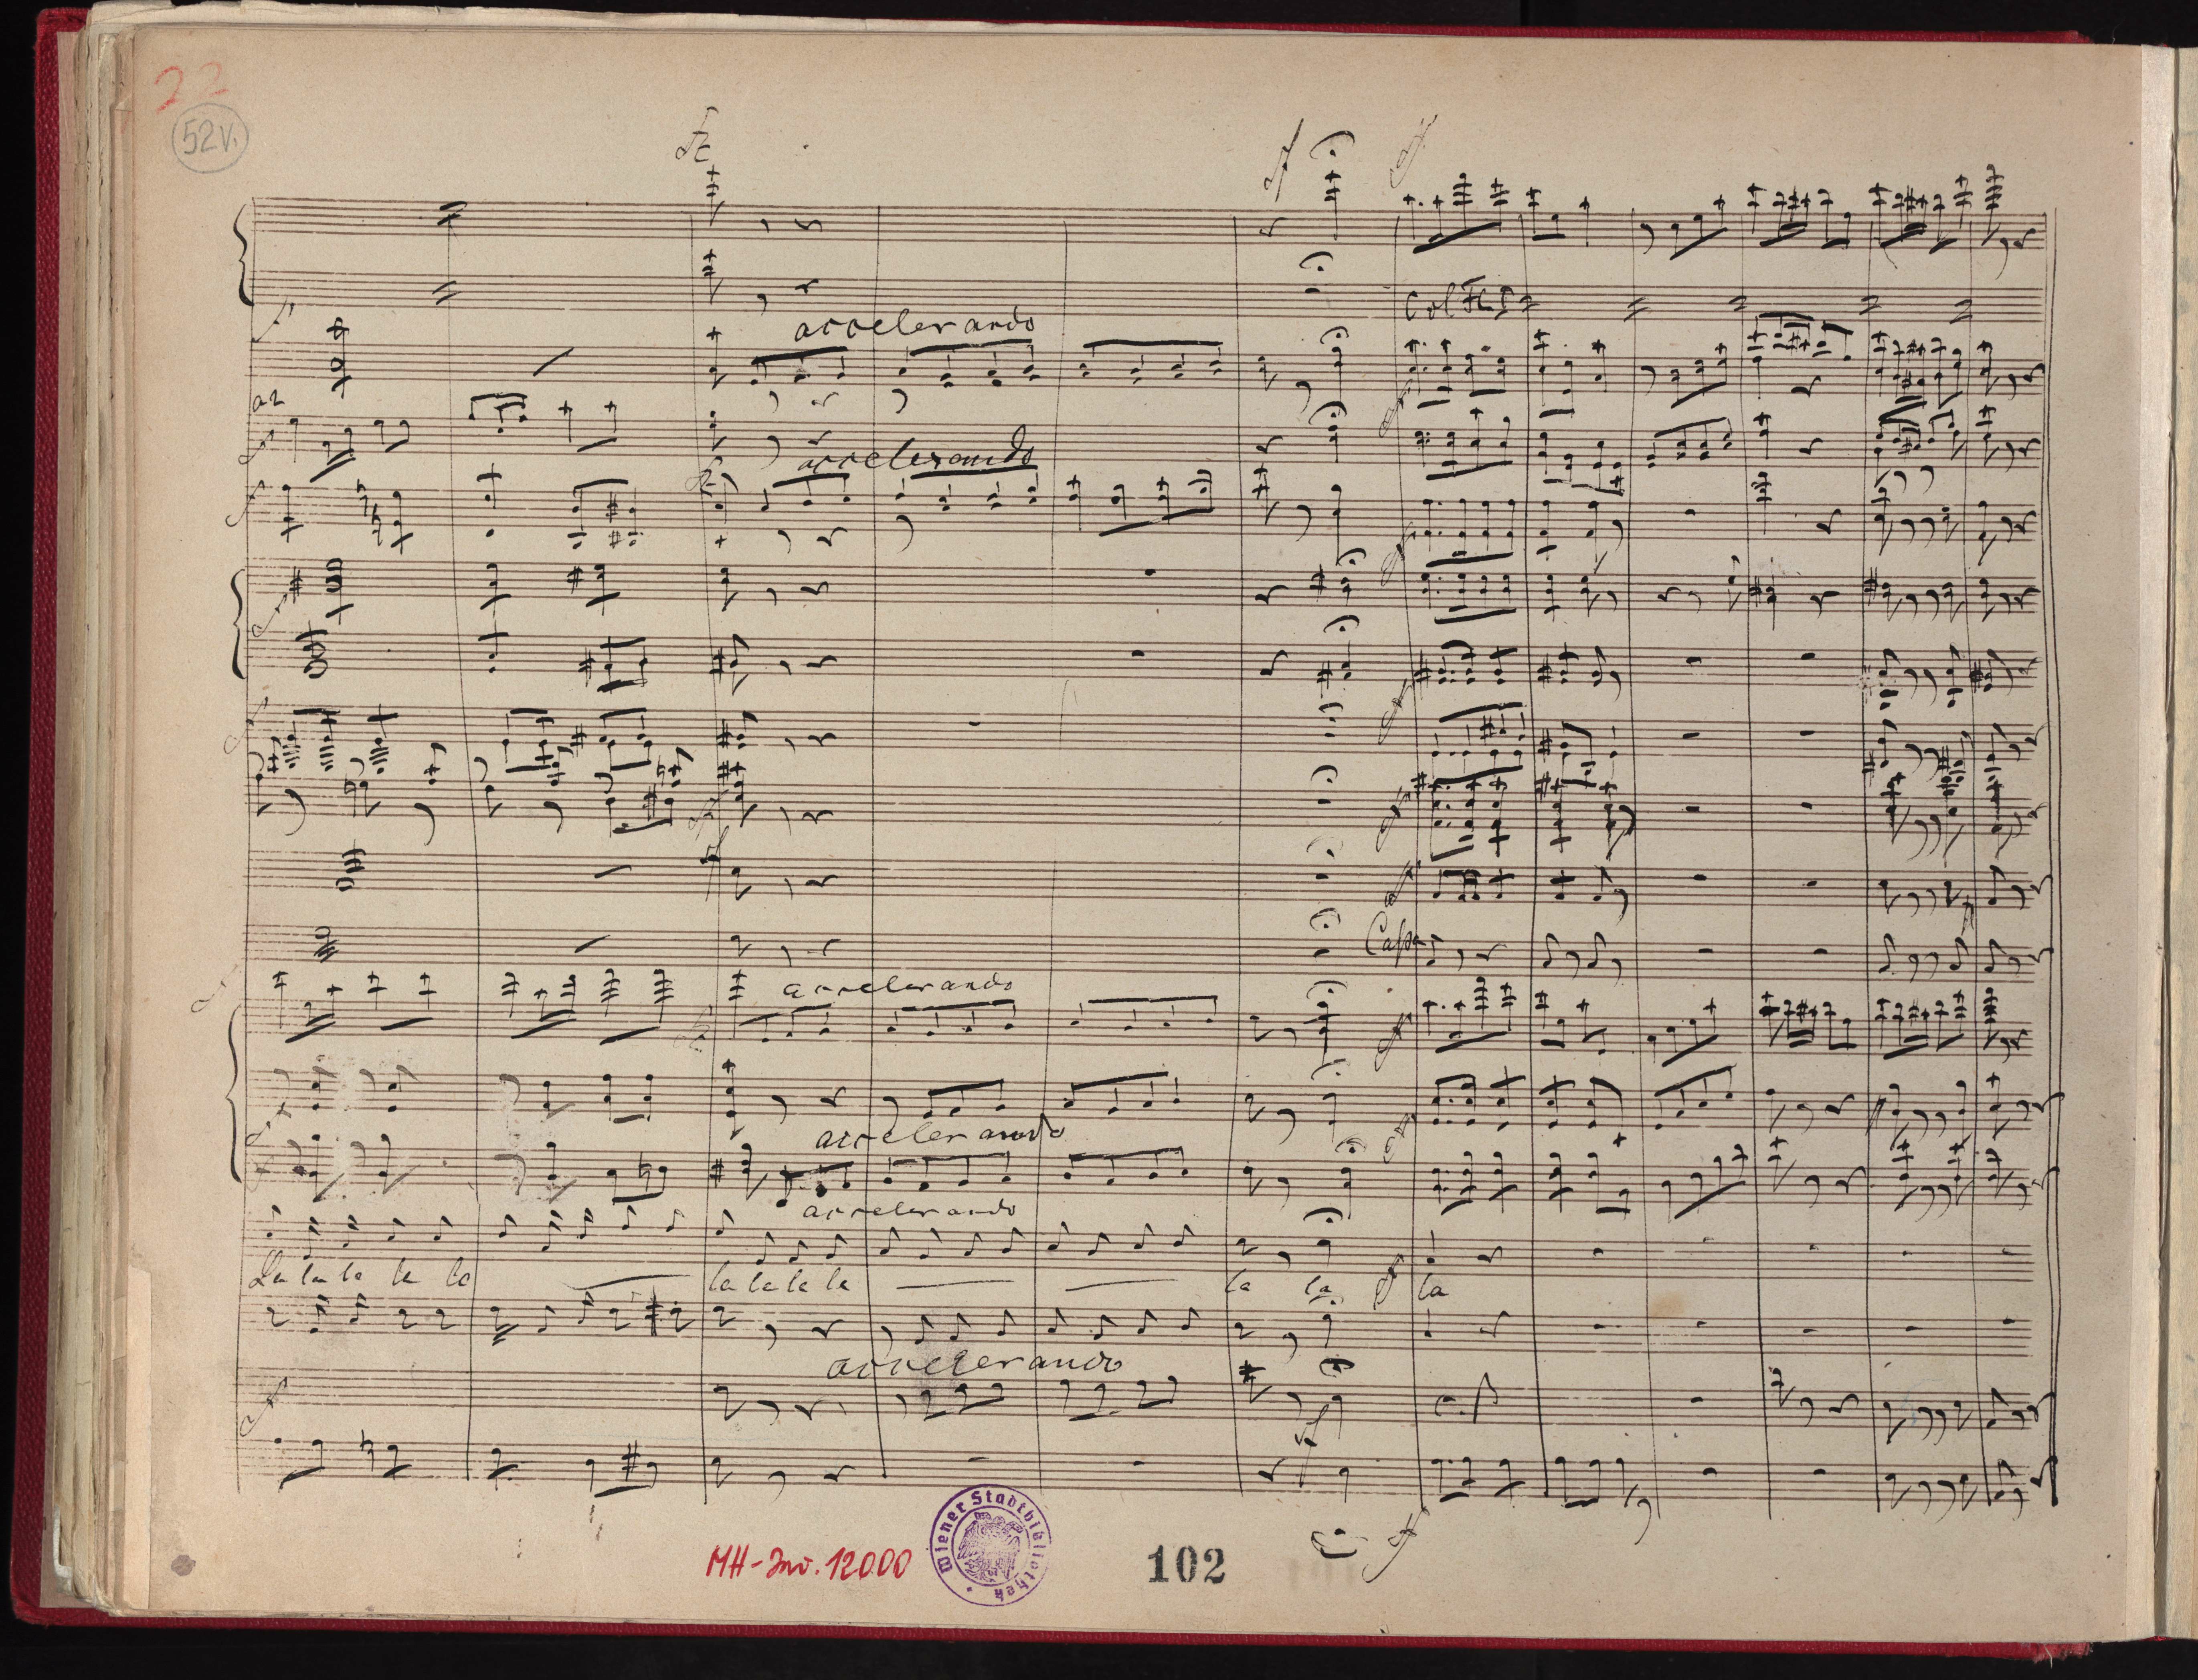 22
52v.
accelerando
a2
accelerando
Col Fl I
accelerando
accelerando
accelerando
La la la la la
la la la la
la
la
la
accelerando
MH-Inv. 12000
Wiener Stadtbibliothek
102